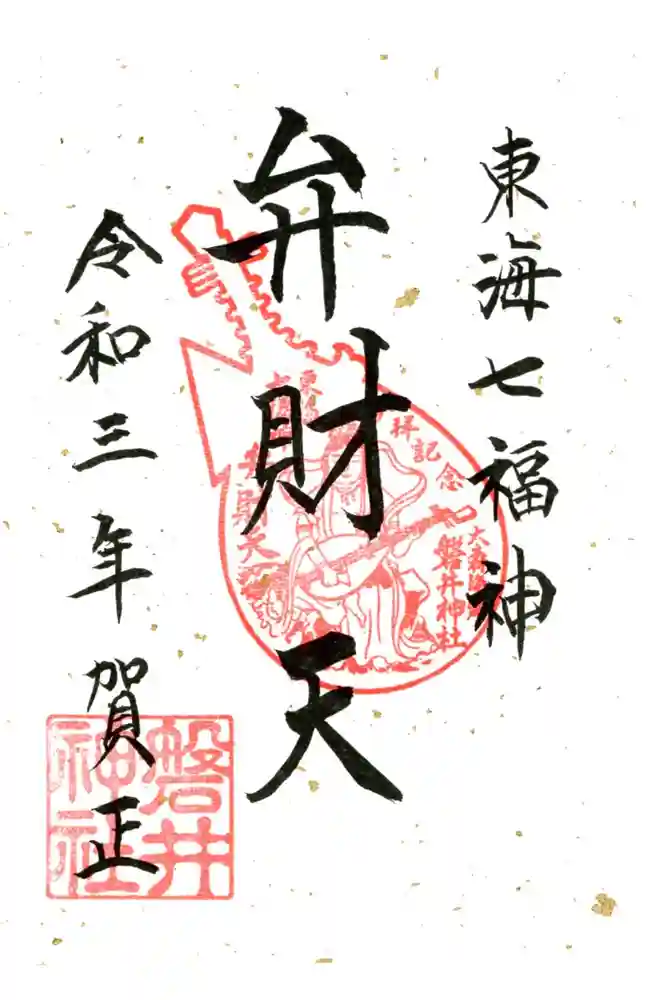 東海七福神
弁財天
令和三年賀正
祥記念
弁財天
磐井神社
磐井
神社